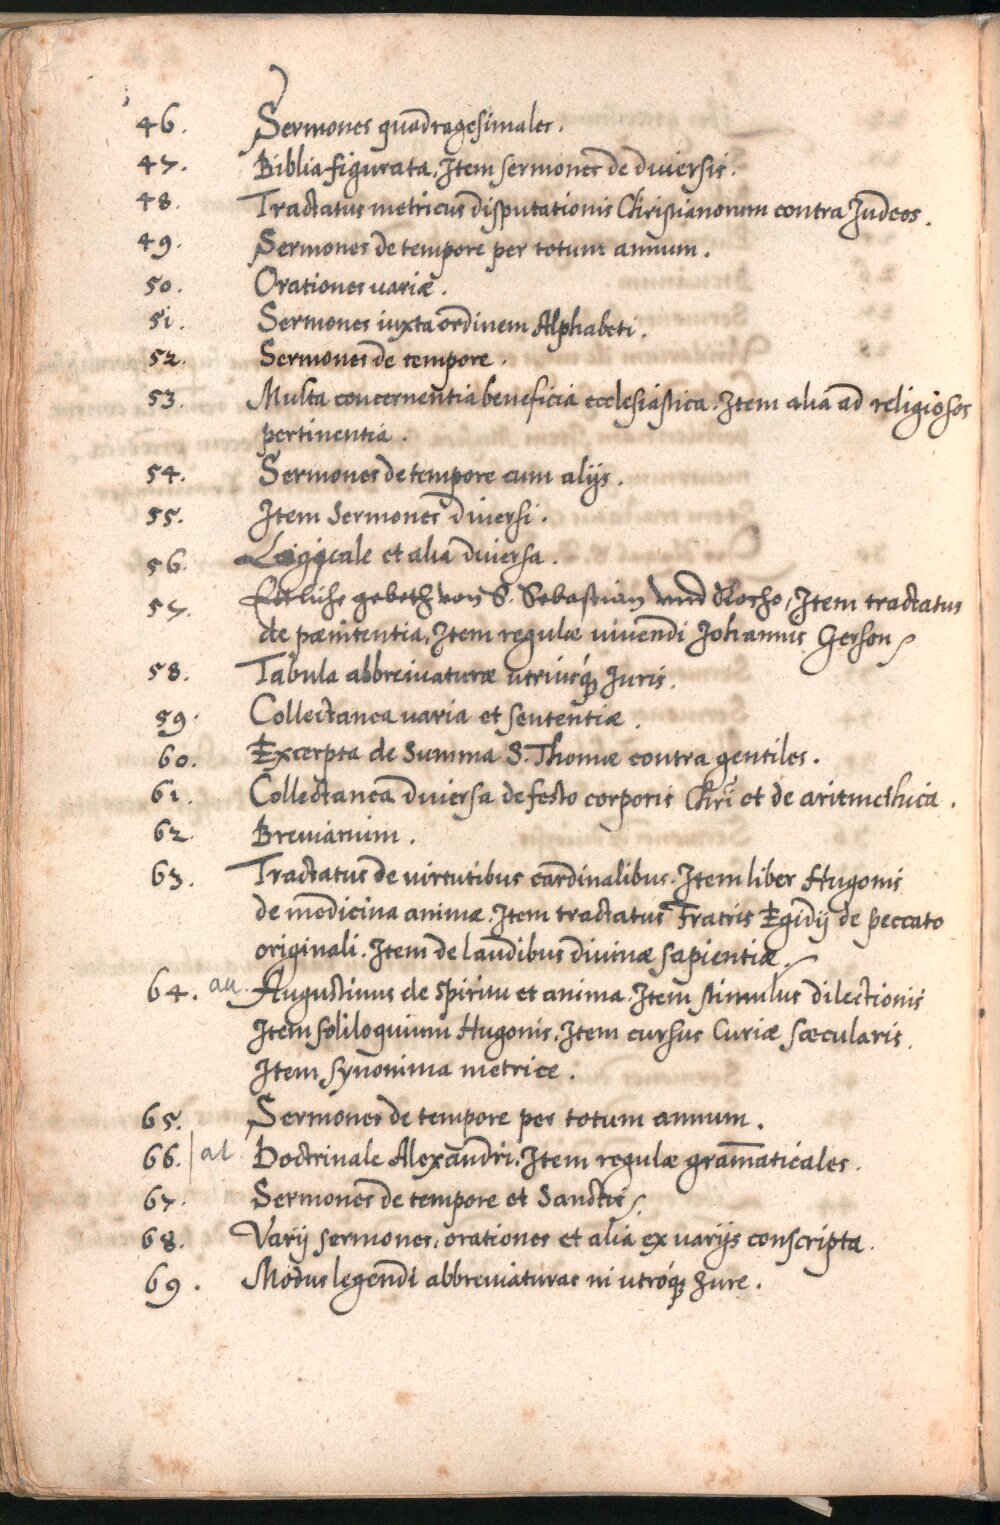 46. Sermones quadragesimales.
47. Biblia figurata. Item sermones de diversis.
48. Tractatus metricus disputationis Christianorum contra Judeos.
49. Sermones de tempore per totum annum.
50. Orationes variæ.
51. Sermones iuxta ordinem Alphabeti.
52. Sermones de tempore.
53. Multa concernentia beneficia ecclesiastica. Item alia ad religiosos
pertinentia.
54. Sermones de tempore cum alijs.
55. Item Sermones diversi.
56. Logicale et alia diversa.
57. Ettliche gebeth von S. Sebastian vnd Rocho, Item tractatus
de pænitentia, Item regulæ vivendi Johannis Gerson
58. Tabula abbreviaturæ utriusq́ꝫ Juris.
59. Collectanea varia et sententiæ.
60. Excerpta de Summa S. Thomæ contra gentiles.
61. Collectanea diversa de festo corporis Chr̄i et de aritmethica.
62. Breviarium.
63. Tractatus de virtutibus cardinalibus. Item liber Hugonis
de medicina animæ. Item tractatus Fratris Egidij de peccato
originali. Item de laudibus divinæ sapientiæ.
64. au. Augustinus de spiritu et anima. Item stimulus dilectionis
Item soliloquium Hugonis. Item cursus Curiæ sæcularis.
Item synonima metrice.
65. Sermones de tempore per totum annum.
66. al Doctrinale Alexandri. Item regulæ gram̄aticales.
67. Sermones de tempore et Sanctis.
68. Varij sermones, orationes et alia ex varijs conscripta.
69. Modus legendi abbreviaturas in utroq́ꝫ Jure.